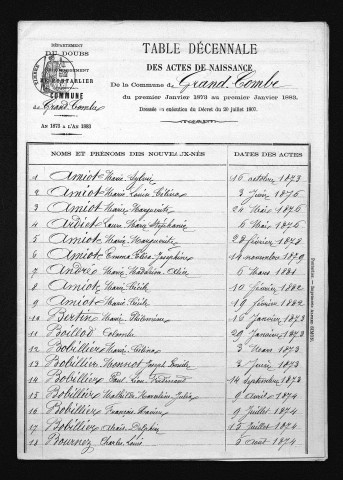 DÉPARTEMENT
DU DOUBS
ARRONDISSEMENT
DE PONTARLIER
COMMUNE
de Grand'Combe
AN 1873 A L'AN 1883
TABLE DÉCENNALE
DES ACTES DE NAISSANCE
De la Commune de Grand'Combe
du premier Janvier 1873 au premier Janvier 1883.
Dressée en exécution du Décret du 20 juillet 1807.
NOMS ET PRÉNOMS DES NOUVEAUX-NÉS DATES DES ACTES
1 Amiot Marie Sylvie 16 octobre 1873
2 Amiot Marie Louise Célina 3 Juin 1875
3 Amiot Marie Marguerite 24 Mars 1876
4 Laure Marie Stéphanie 6 Mars 1876
5 Amiot Marie Marguerite 28 février 1878
6 Amiot Emma Célia Joséphine 14 novembre 1879
7 André Marie 6 Mars 1881
8 Amiot Marie 10 février 1882
9 Amiot Marie 19 février 1882
10 Bertin Marie Philomène 16 Janvier 1873
11 Boillod Colombe 29 Janvier 1873
12 Bobillier Marie Célina 3 Mars 1873
13 Bobillier Monnot Joseph 3 Juin 1873
14 Bobillier Paul Léon Ferdinand 14 septembre 1873
15 Bobillier Mathilde Julia 9 Avril 1874
16 Bobillier François 9 Juillet 1874
17 Bobillier Delphin 15 Juillet 1874
18 Bournez Charles Louis 5 août 1874